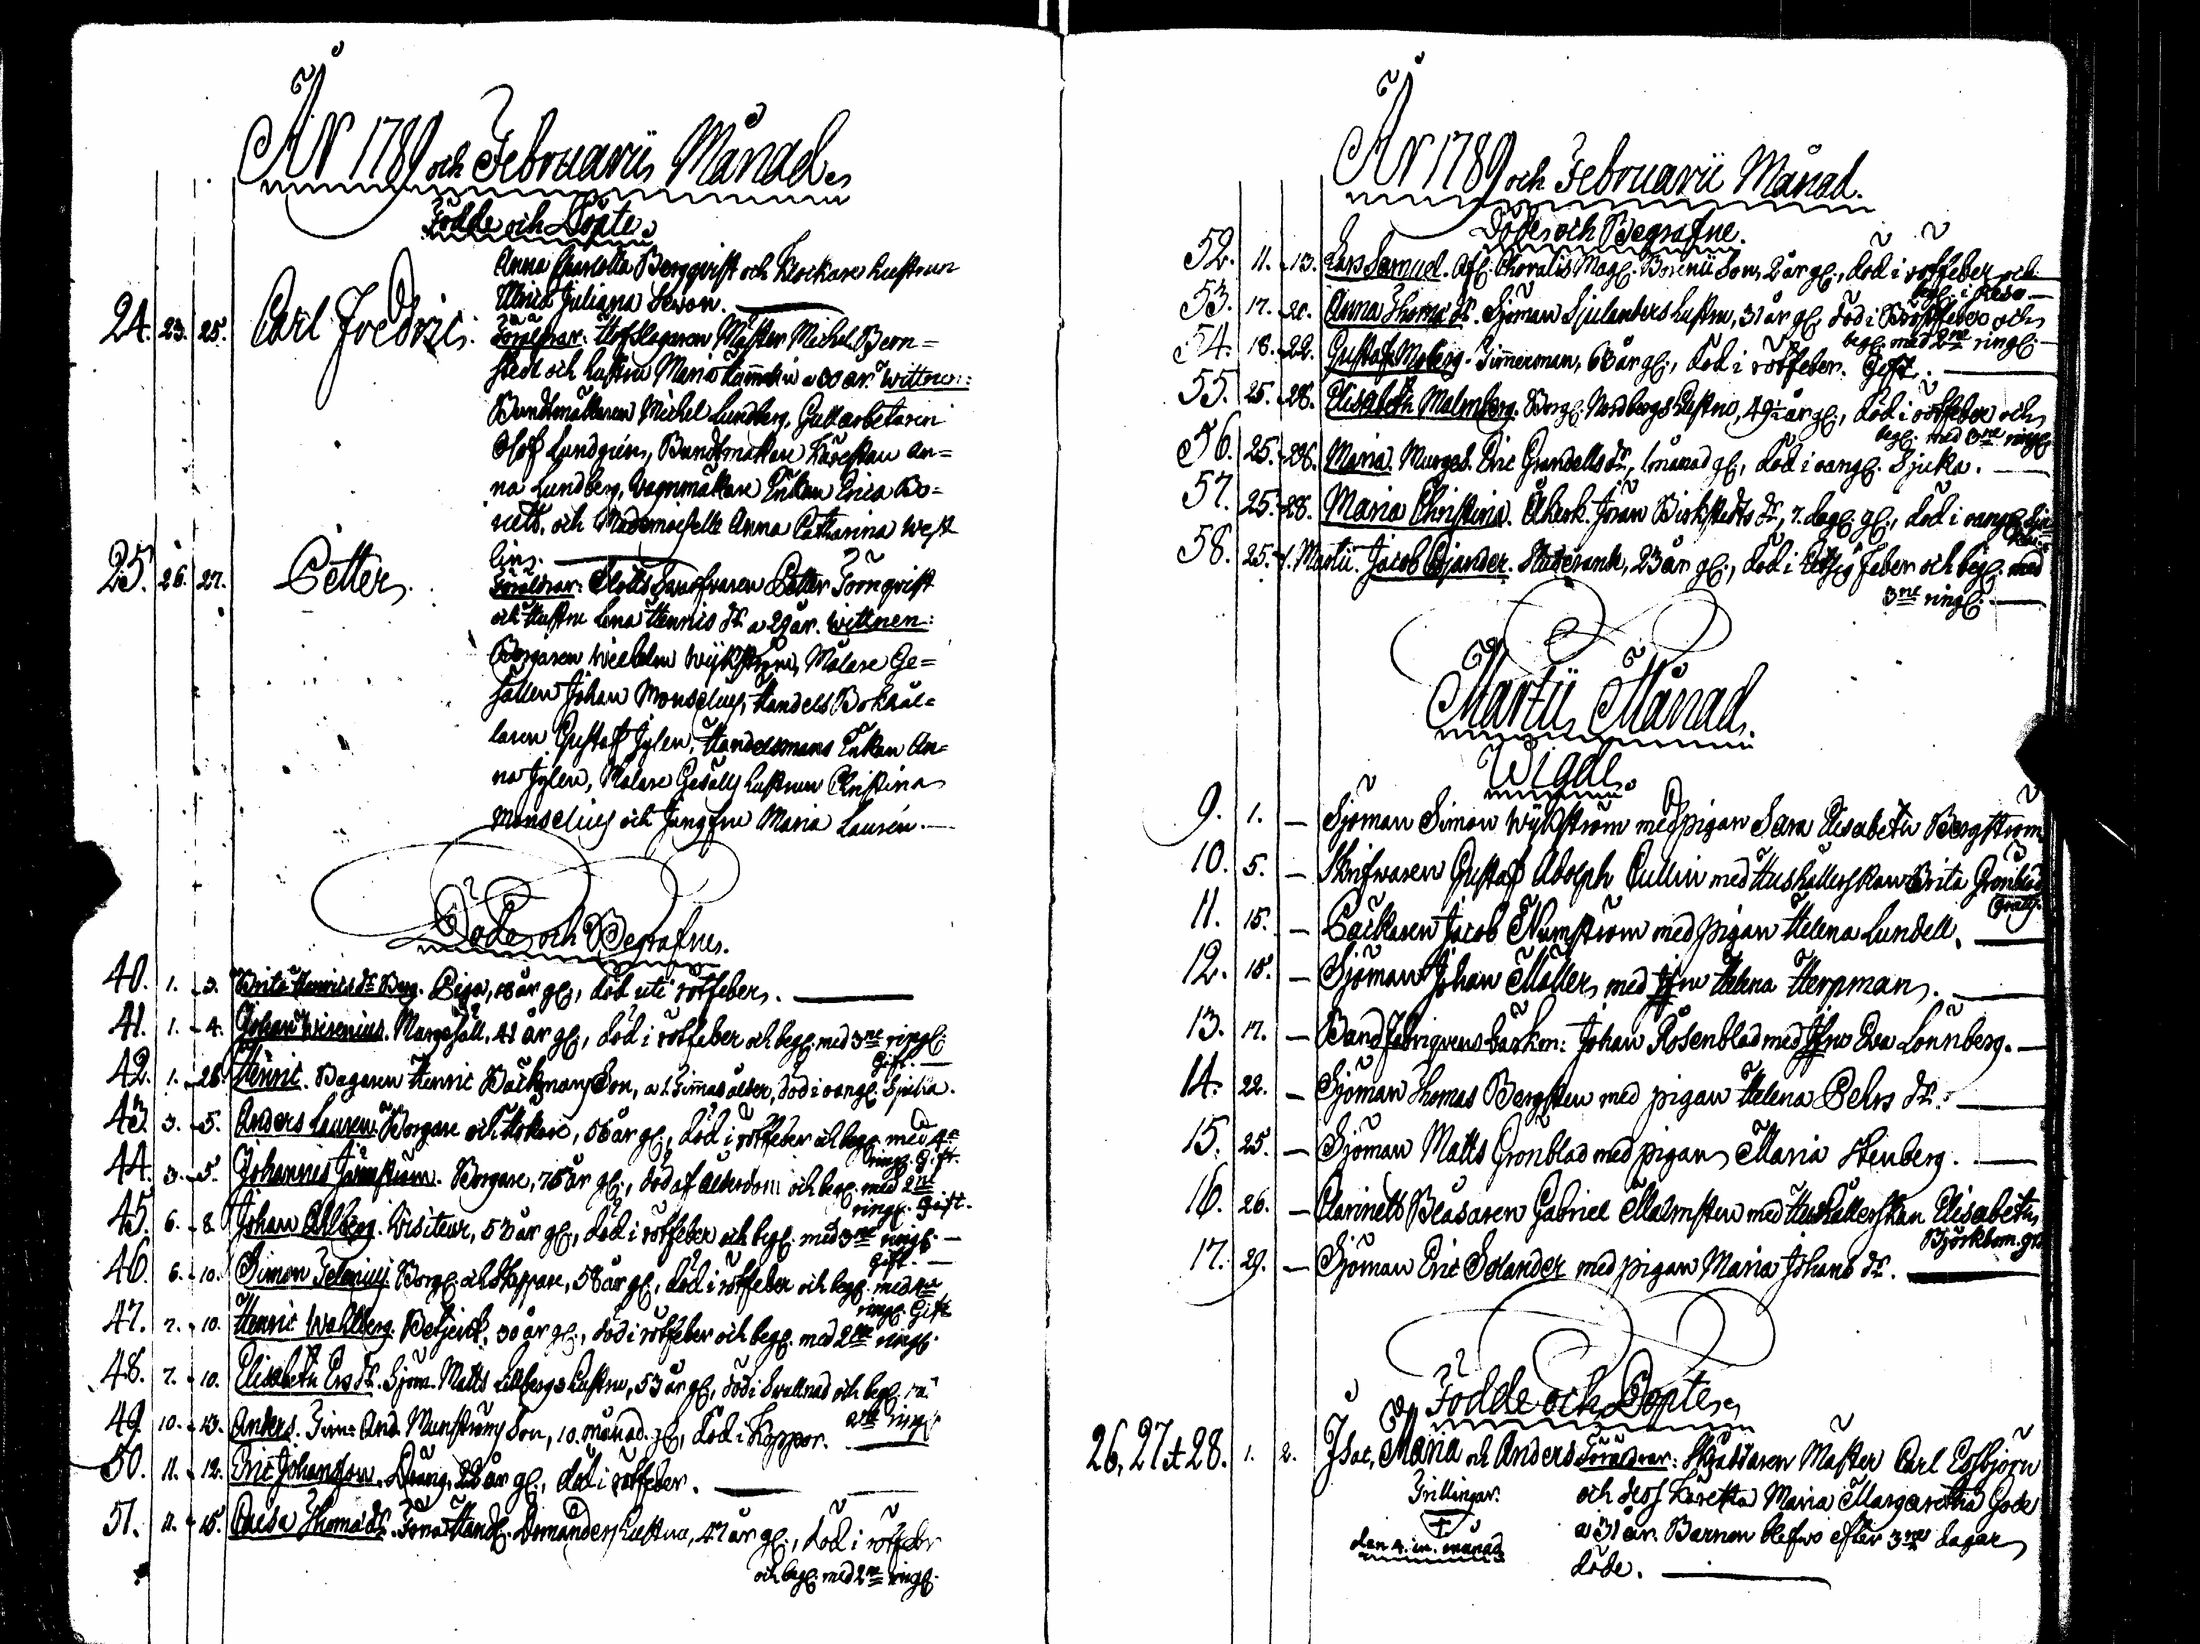 År 1789 och Februarii Månad.
Födde och Döpte.
Anna Charlotta Bergqvist och Klockare hustrun
Ulrica Juliana
24. 23. 25. Carl Fredric. Föräldrar: Hofslagaren Mäster Michel Bern=
stedt och hustru Maria a 30 år. Wittnen:
Buntmakaren Michel Lundberg, Gullarbetaren
Olof Lundgrén, Buntmakare Kärestan An=
na Lundberg, Vagnmakare Enkan Brita Bo=
och Mademoiselle Anna Catharina West
lin.
25. 26. 27. Petter. Föräldrar: Petter Törnqvist
och Hustru Lena Henrics dr a 29 år. Wittnen:
Borgaren Wilhelm Wijkström, Målare Ge=
sällen Johan Monselius, Handels Bokhål=
laren Gustaf Jylen, Handelsmans Enkan An=
na Jylen, Målare Gesälls hustrun Christina
Monselius och Jungfru Maria Laurén.
Döde och Begrafne.
40. 1. 3. Brita Henrics dr Berg. Piga, 18 år gl, död uti rötfeber.
41. 1. 4. Johan Wirenius. 41 år gl, död i rötfeber och begr. med 3ne ringl.
Gift.
42. 1. 28. Henric. Bagaren Henric Backmans Son, a 1. timas ålder, död i oangl. Sjuka.
43. 3. 5. Anders Lauren. Borgare och Hökare, 56 år gl, död i rötfeber och begr. med 4ra
ringl. Gift.
44. 3. 5. Johannes Borgare, 75 år gl, död af ålderdom och begr. med 2ne
ringl. Gift.
45. 6. 8. Johan Ahlberg. Visiteur, 53 år gl, död i rötfeber och begr. med 3ne ringl.
Gift.
46. 6. 10. Simon Borg. och Skeppare, 58 år gl, död i rötfeber och begr. med
ringl. Gift
47. 7. 10. Henric Wahlberg. Betjent, 30 år gl, död i rötfeber och begr. med 2ne ringl.
48. 7. 10. Elisabeth Ers dr. Sjöm. Matts Lillbergs hustru, 53 år gl, död i Svullnad och begr.
2ne ringl.
49. 10. 13. Anders. Tim: And. Munströms Son, 10. månad. gl, död i Koppor.
50. 11. 12. Eric Johansson. Dräng, 22 år gl, död i rötfeber.
51. 11. 15. Caisa Thomæ dr. hustru, 47 år gl, död i rötfeber
och begr. med 2ne ringl.
År 1789 och Februarii Månad.
Döde och Begrafne.
52. 11. 13. Lars Samuel. Choralis Mag. Borenii Son, 2 år gl, död i rötfeber och
begr. i
53. 17. 20. Anna Thomæ dr. Sjöman Sjulanders hustru, 31 år gl, död i och
begr. med 2ne ringl.
54. 18. 22. Gustaf Moberg. Timmerman, 68 år gl, död i rötfeber. Gift.
55. 25. 28. Elisabeth Malmberg. Borg. Nordbergs hustru, 49½ år gl, död i rötfeber och
begr. med 3ne ringl.
56. 25. 28. Maria. Murges. Eric Grandells dr, 1 månad gl, död i oangl. Sjuka.
57. 25. 28. Maria Christina. Åkerk. Jöran Birkstedts dr, 7. dag. gl, död i oangl. Sju=
ka.
58. 25. 1. Martii. Jacob Cajander. Studerande, 23 år gl, död i Hetsig feber och begr. med
3ne ringl.
Martii Månad.
Wigde.
9. 1. — Sjöman Simon Wijkström med pigan Sara Elisabeth Bergström
10. 5. — Skrifvaren Gustaf Adolph Cullin med Hushållerskan Brita Grönblad
Gratis.
11. 15. — Packaren Jacob Numström med pigan Helena Lundell.
12. 15. — Sjöman Johan Möller med Jfru Helena Herpman.
13. 17. — Bandfabriqueurs Johan Rosenblad med Jfru Eva Lönnberg.
14. 22. — Sjöman Thomas Bergsten med pigan Helena Pehrs dr.
15. 25. — Sjöman Matts Grönblad med pigan Maria Stenberg.
16. 26. — Clarinetts Blåsaren Gabriel Malmsten med Hushållerskan Elisabeth
Björkbom. gr.
17. 29. — Sjöman Eric Solander med pigan Maria Johans dr.
Födde och Döpte.
26, 27 et 28. 1. 2. Isac, Maria och Anders Föräldrar: Skräddaren Mäster Carl Essbjörn
Trillingar. och dess Käresta Maria Margaretha Gode
a 31 år. Barnen blefvo efter 3ne dagar
den 4. in. månad
döde.